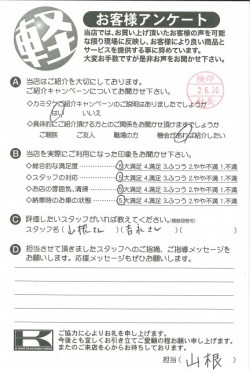 軽
お客様アンケート
当店では、お買い上げ頂いたお客様の声を可能
な限り現場に反映し、お客様により良い商品と
サービスを提供する事に努めています。
大変お手数ですが是非お声をお聞かせ下さい。
検印
2.6.30
A 当店はご紹介を大切にしております。
ご紹介キャンペーンについてお聞かせ下さい。
・カミタケでご紹介キャンペーンのご説明はありましたでしょうか
はい いいえ
・具体的にご紹介頂ける方とのご関係をお聞かせ頂けますでしょうか
ご親族 ご友人 職場の方 機会があれば紹介したい
B 当店を実際にご利用になった印象をお聞かせ下さい。
・総合的な満足度 5.大満足 4.満足 3.ふつう 2.やや不満 1.不満
・スタッフの対応 5.大満足 4.満足 3.ふつう 2.やや不満 1.不満
・お店の雰囲気、清掃 5.大満足 4.満足 3.ふつう 2.やや不満 1.不満
・納車時のお車の状態 5.大満足 4.満足 3.ふつう 2.やや不満 1.不満
C 評価したいスタッフがいれば教えてください。(複数回答可)
スタッフ名(山根さん)(吉永さん)
D 担当させて頂きましたスタッフへのご指摘、ご指導メッセージを
お願いします。応援メッセージもぜひお願いします。
K
ご協力に心よりお礼を申し上げます。
今後とも宜しくお引き立てご愛顧の程お願い申し上げます。
またのご来店を心からお待ちしております。
担当(山根)